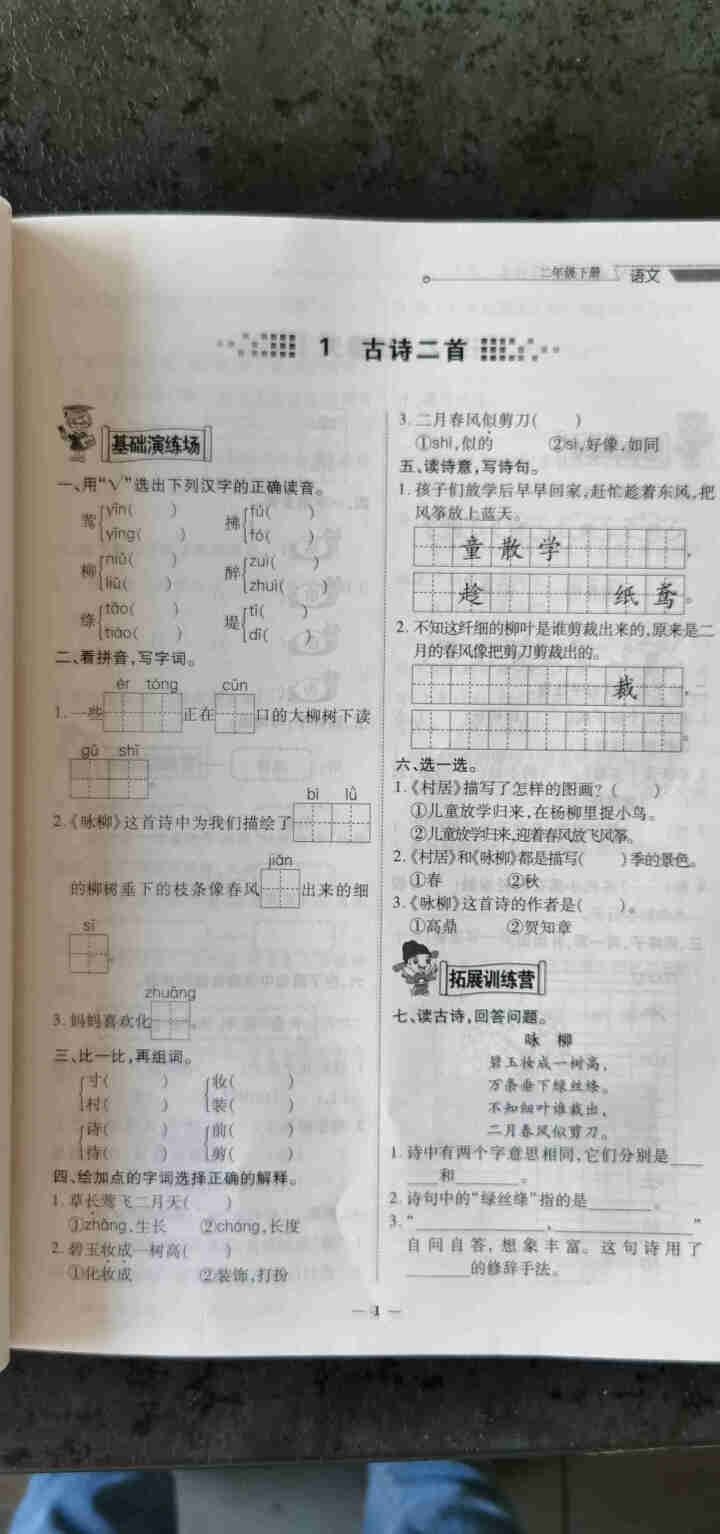 二年级下册 语文
1 古诗二首
基础演练场
一、用“√”选出下列汉字的正确读音。
莺 yīn( ) yīng( ) 拂 fú( ) fó( )
柳 niǔ( ) liǔ( ) 醉 zuì( ) zhuì( )
绦 tāo( ) tiáo( ) 堤 tí( ) dī( )
二、看拼音,写字词。
ér tóng cūn
1. 一些 正在 口的大柳树下读
gǔ shī
。
bì lǜ
2.《咏柳》这首诗中为我们描绘了
jiǎn
的柳树垂下的枝条像春风 出来的细
sī
。
zhuāng
3. 妈妈喜欢化 。
三、比一比,再组词。
寸( ) 妆( )
村( ) 装( )
诗( ) 前( )
待( ) 剪( )
四、给加点的字词选择正确的解释。
1. 草长莺飞二月天( )
①zhǎng,生长 ②cháng,长度
2. 碧玉妆成一树高( )
①化妆成 ②装饰,打扮
3. 二月春风似剪刀( )
①shì,似的 ②sì,好像,如同
五、读诗意,写诗句。
1. 孩子们放学后早早回家,赶忙趁着东风,把
风筝放上蓝天。
童 散 学 ,
趁 纸 鸢 。
2. 不知这纤细的柳叶是谁剪裁出来的,原来是二
月的春风像把剪刀剪裁出的。
裁 ,
。
六、选一选。
1.《村居》描写了怎样的图画?( )
①儿童放学归来,在杨柳里捉小鸟。
②儿童放学归来,迎着春风放飞风筝。
2.《村居》和《咏柳》都是描写( )季的景色。
①春 ②秋
3.《咏柳》这首诗的作者是( )。
①高鼎 ②贺知章
拓展训练营
七、读古诗,回答问题。
咏 柳
碧玉妆成一树高,
万条垂下绿丝绦。
不知细叶谁裁出,
二月春风似剪刀。
1. 诗中有两个字意思相同,它们分别是____
____和________。
2. 诗句中的“绿丝绦”指的是________。
3.“________________,________________”
自问自答,想象丰富。这句诗用了
________的修辞手法。
— 1 —